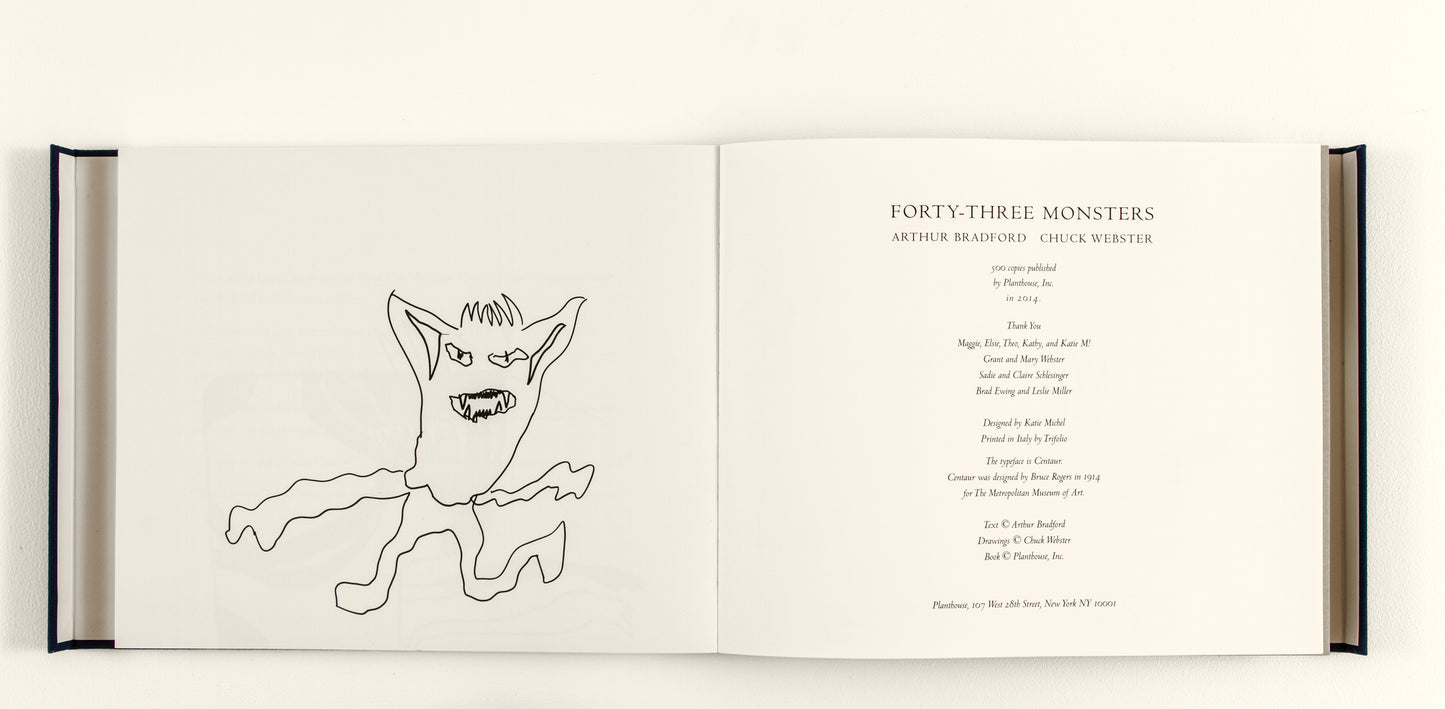 FORTY-THREE MONSTERS
ARTHUR BRADFORD CHUCK WEBSTER
500 copies published
by Planthouse, Inc.
in 2014.
Thank You
Maggie, Elsie, Theo, Kathy, and Katie M!
Grant and Mary Webster
Sadie and Claire Schlesinger
Brad Ewing and Leslie Miller
Designed by Katie Michel
Printed in Italy by Trifolio
The typeface is Centaur.
Centaur was designed by Bruce Rogers in 1914
for The Metropolitan Museum of Art.
Text © Arthur Bradford
Drawings © Chuck Webster
Book © Planthouse, Inc.
Planthouse, 107 West 28th Street, New York NY 10001